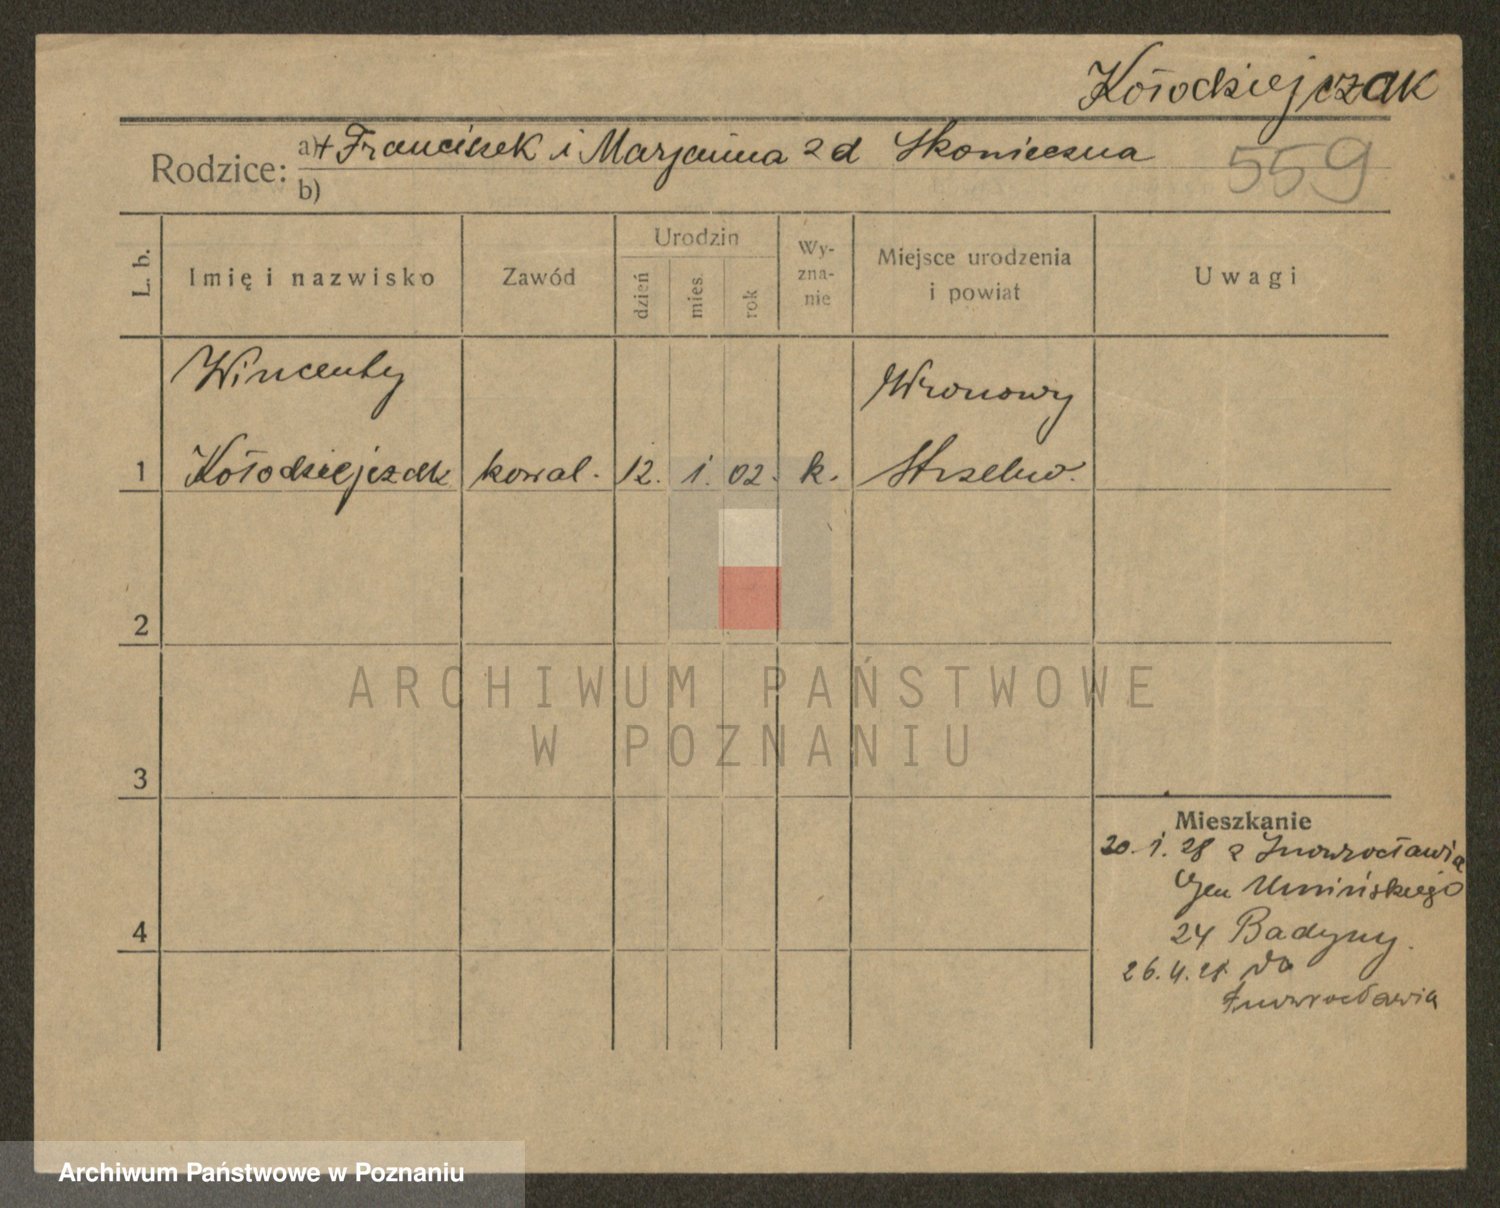 Kołodziejczak
Rodzice: a) + Franciszek i Marjanna z d Skonieczna
b)
559
L. b.
Imię i nazwisko
Zawód
Urodzin
dzień
mies.
rok
Wy-
zna-
nie
Miejsce urodzenia
i powiat
Uwagi
Wincenty
Wronowy
1 Kołodziejczak kowal. 12. 1. 02. k. Strzelno.
2
ARCHIWUM PAŃSTWOWE
W POZNANIU
3
Mieszkanie
20. 1. 28 z Inowrocławia
Gen Umińskiego
4
24 Badyny.
26.4.28 do
Inowrocławia
Archiwum Państwowe w Poznaniu